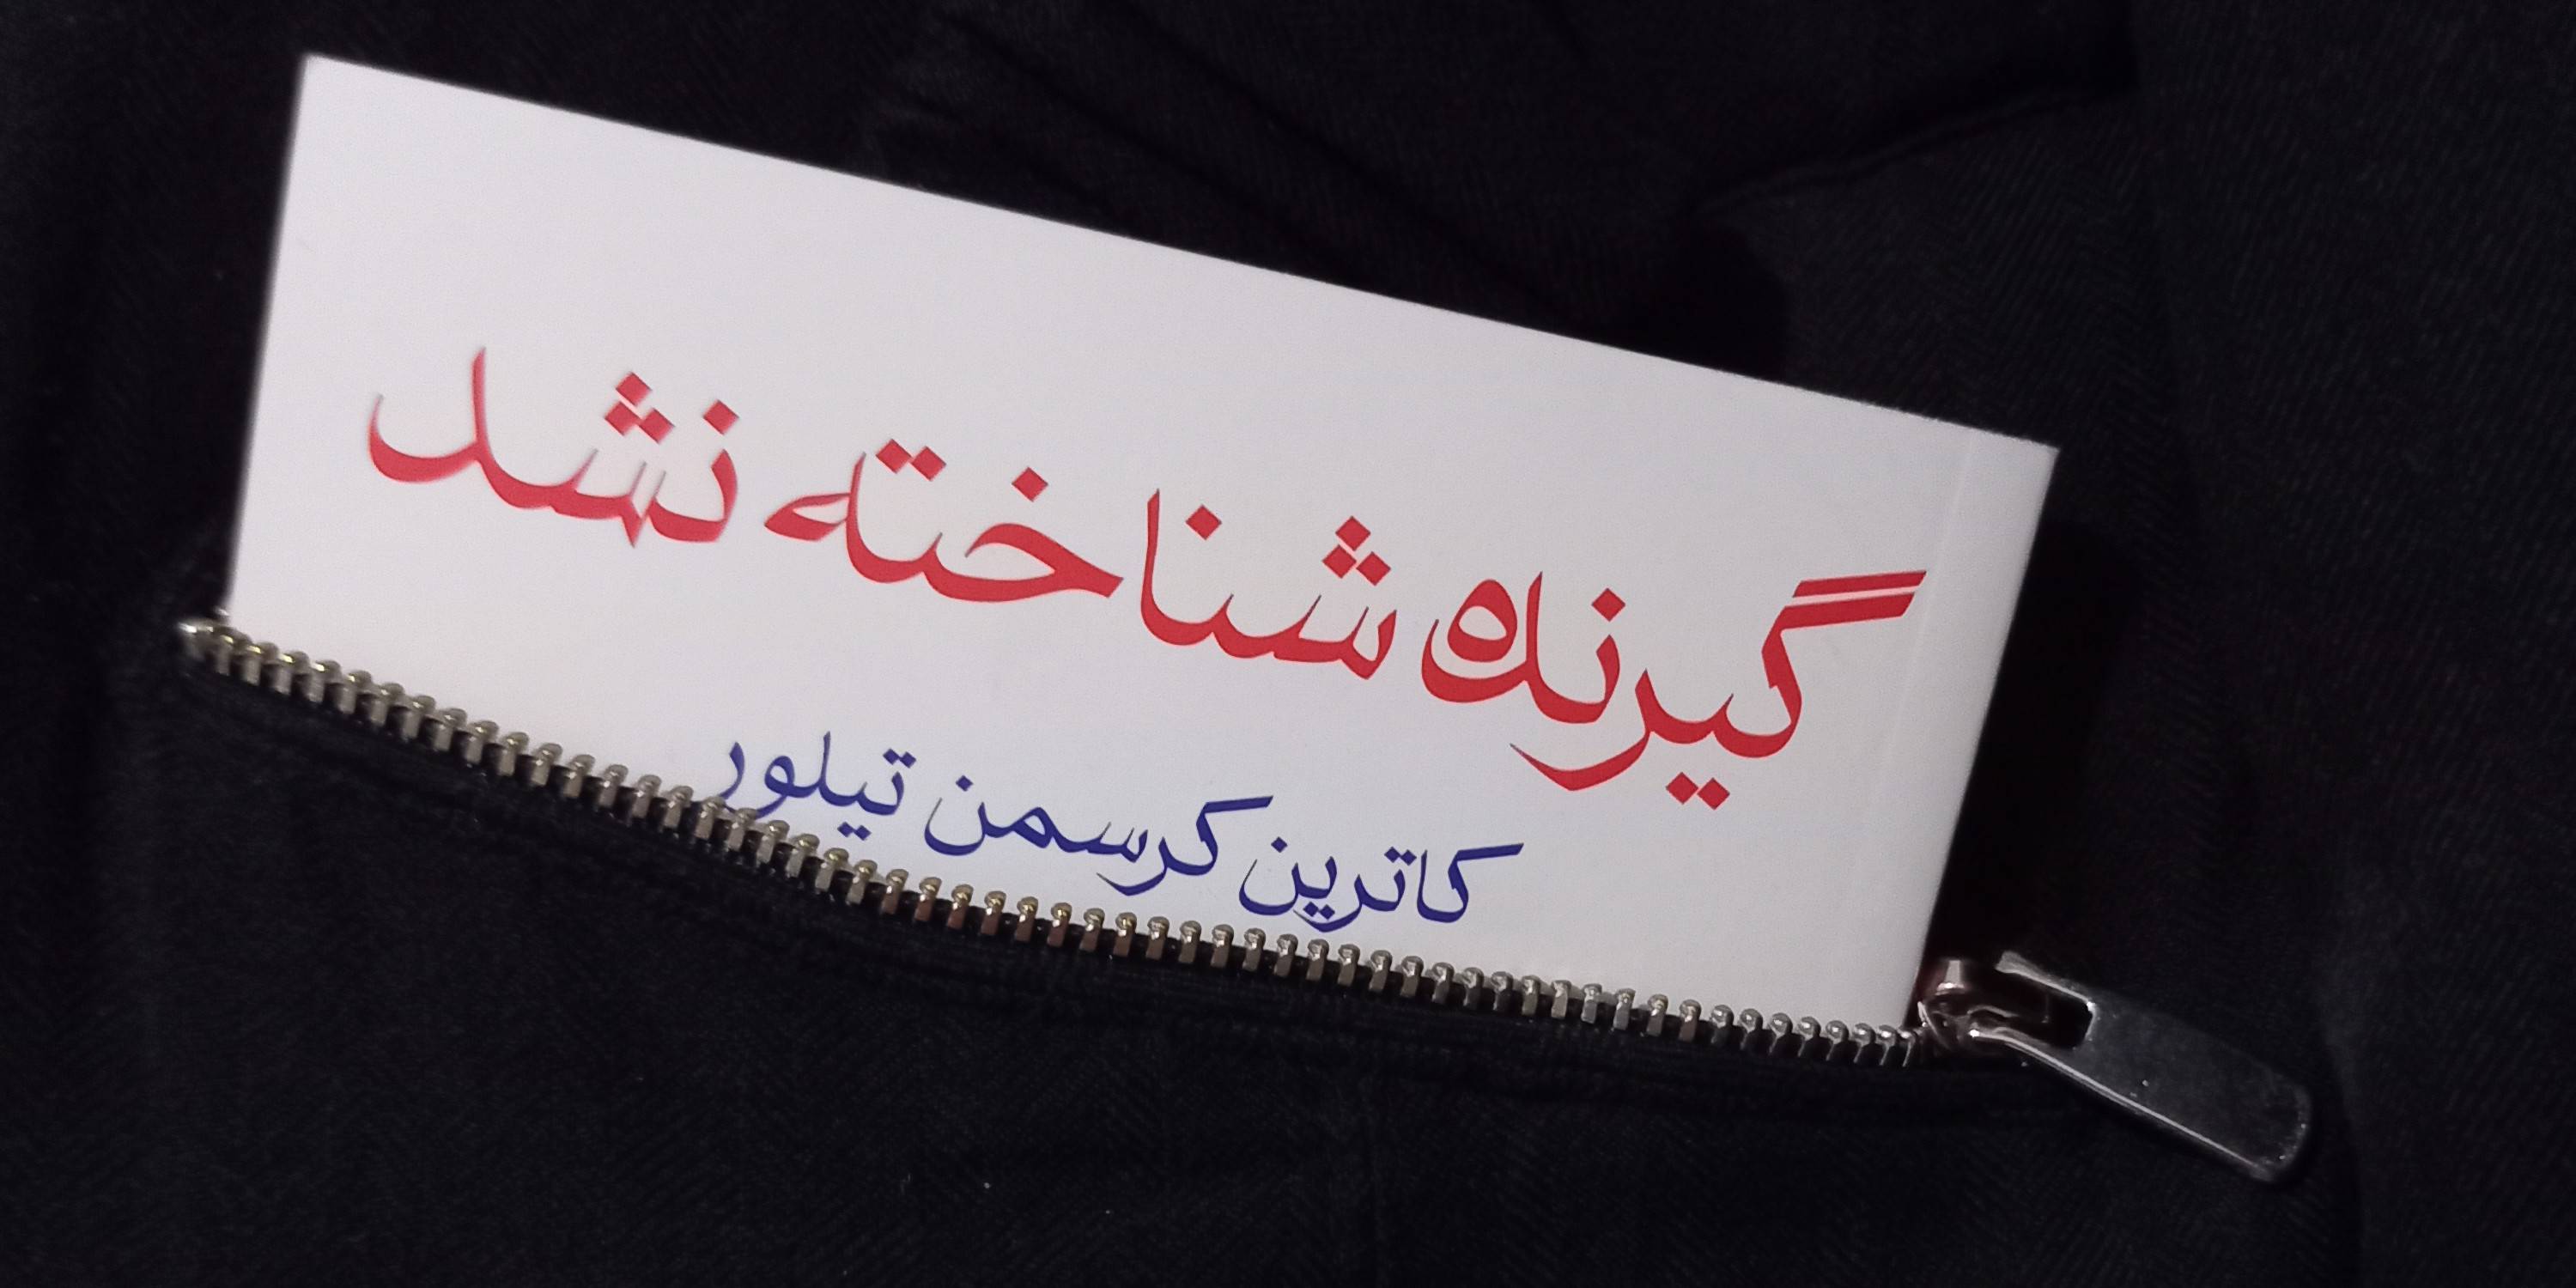 گیرنده شناخته نشد
کاترین کرسمن تیلور